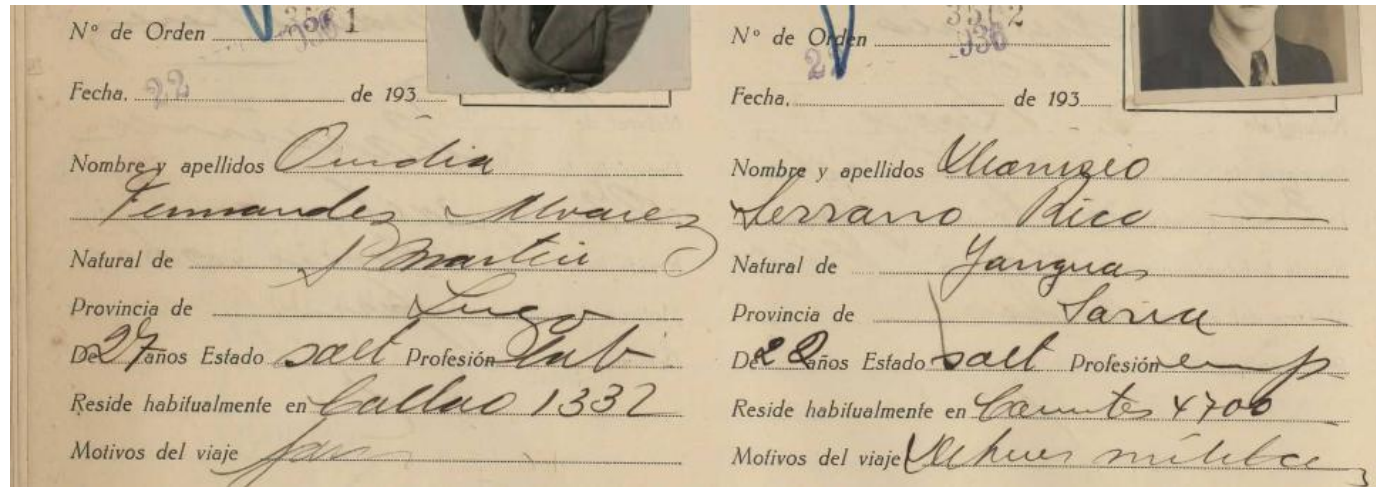 Nº de Orden 3561
936
22
Fecha, de 193
Nombre y apellidos Ovidia
Fernandez Alvarez
Natural de S Martin
Provincia de Lugo
De 27 años Estado solt Profesión lab
Reside habitualmente en Callao 1332
Motivos del viaje
Nº de Orden 3562
936
22
Fecha, de 193
Nombre y apellidos
Serrano Rico
Natural de Yanguas
Provincia de Soria
De 22 años Estado solt Profesión emp
Reside habitualmente en 4700
Motivos del viaje